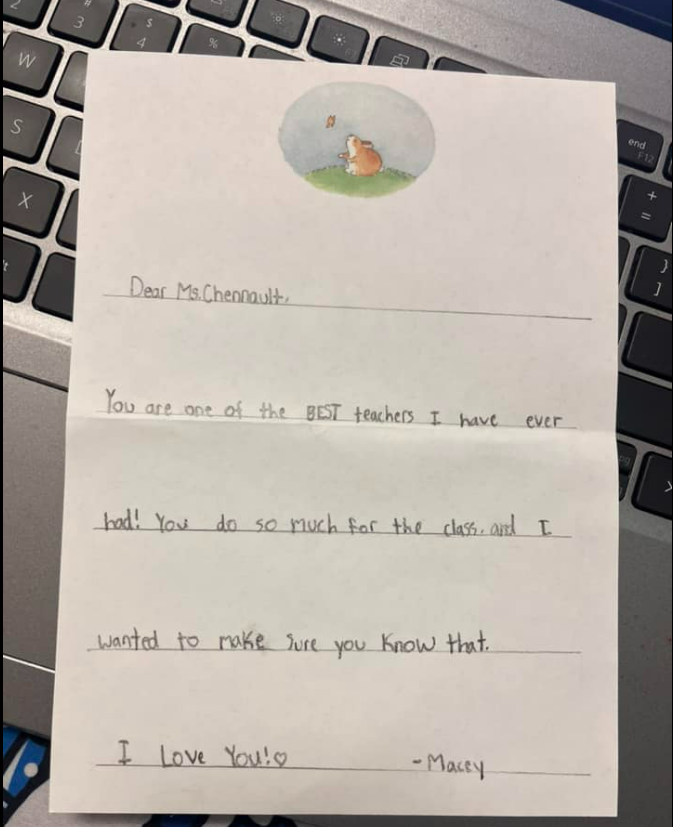 2
#
3
$
4
%
W
S
X
end
F12
+
=
}
]
>
Dear Ms. Chennault,
You are one of the BEST teachers I have ever
had! You do so much for the class, and I
wanted to make sure you know that.
I Love You!♡ -Macey